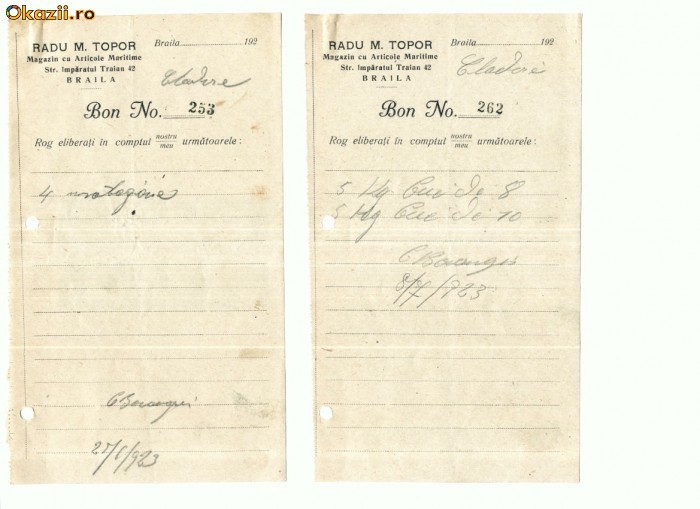 Okazii.ro
RADU M. TOPOR
Magazin cu Articole Maritime
Str. Impăratul Traian 42
BRAILA
Braila 192
Cladire
Bon No. 253
Rog eliberați în comptul nostru/meu următoarele:
4
27/6/923
RADU M. TOPOR
Magazin cu Articole Maritime
Str. Impăratul Traian 42
BRAILA
Braila 192
Cladire
Bon No. 262
Rog eliberați în comptul nostru/meu următoarele:
5 Kg Cui de 8
5 Kg Cui de 10
8/7/923